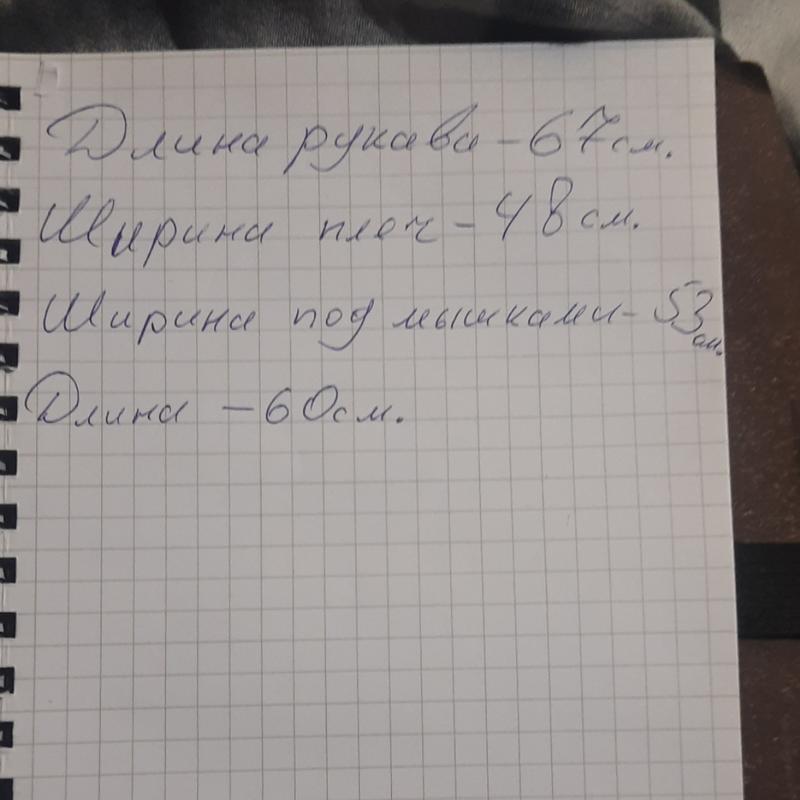 Длина рукава - 67 см.
Ширина плеч - 48 см.
Ширина под мышками - 53 см.
Длина - 60 см.